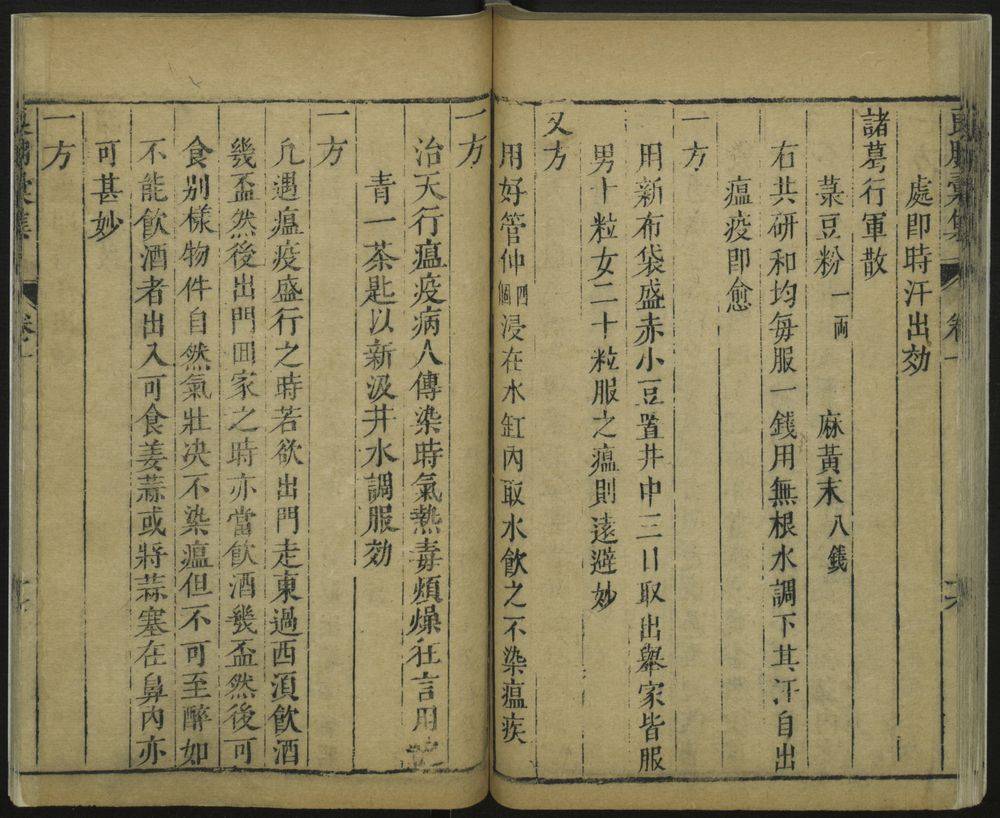 良朋彙集 卷一
處即時汗出効
諸葛行軍散
菉豆粉一両 麻黃末八錢
右共研和均每服一錢用無根水調下其汗自出
瘟疫即愈
一方
用新布袋盛赤小豆置井中三日取出舉家皆服
男十粒女二十粒服之瘟則遠避妙
又方
用好管仲四個浸在水缸內取水飲之不染瘟疾
一方
治天行瘟疫病人傳染時氣熱毒煩燥狂言用
青一茶匙以新汲井水調服効
一方
凢遇瘟疫盛行之時若欲出門走東過西湏飲酒
幾盃然後出門囬家之時亦當飲酒幾盃然後可
食别樣物件自然氣壯决不染瘟但不可至醉如
不能飲酒者出入可食姜蒜或將蒜塞在鼻內亦
可甚妙
卷一